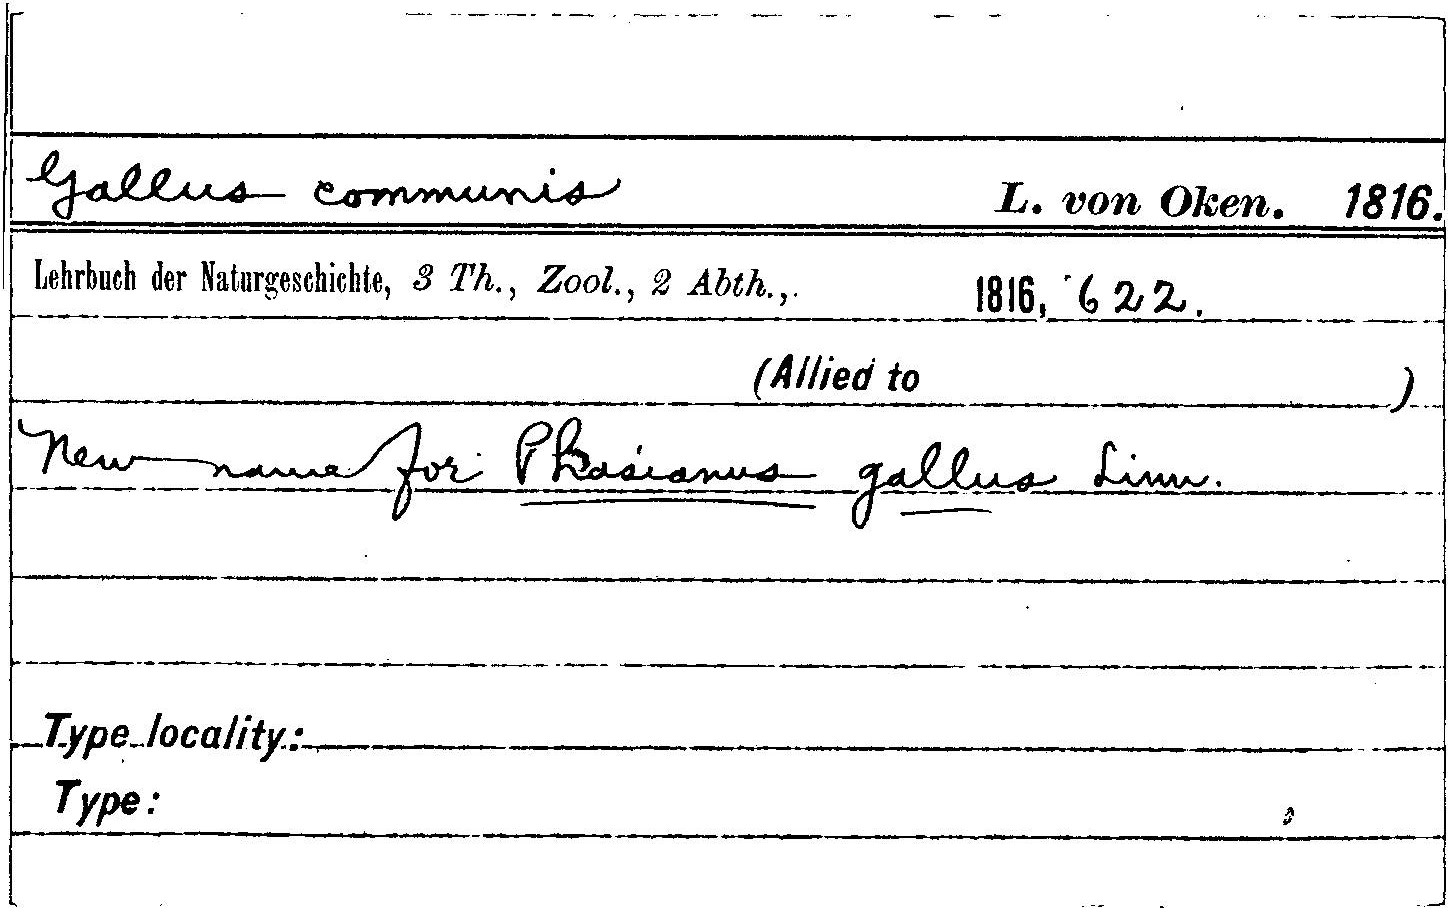 Gallus communis L. von Oken. 1816.
Lehrbuch der Naturgeschichte, 3 Th., Zool., 2 Abth., 1816, 622.
(Allied to )
New name for Phasianus gallus Linn.
Type locality:
Type: